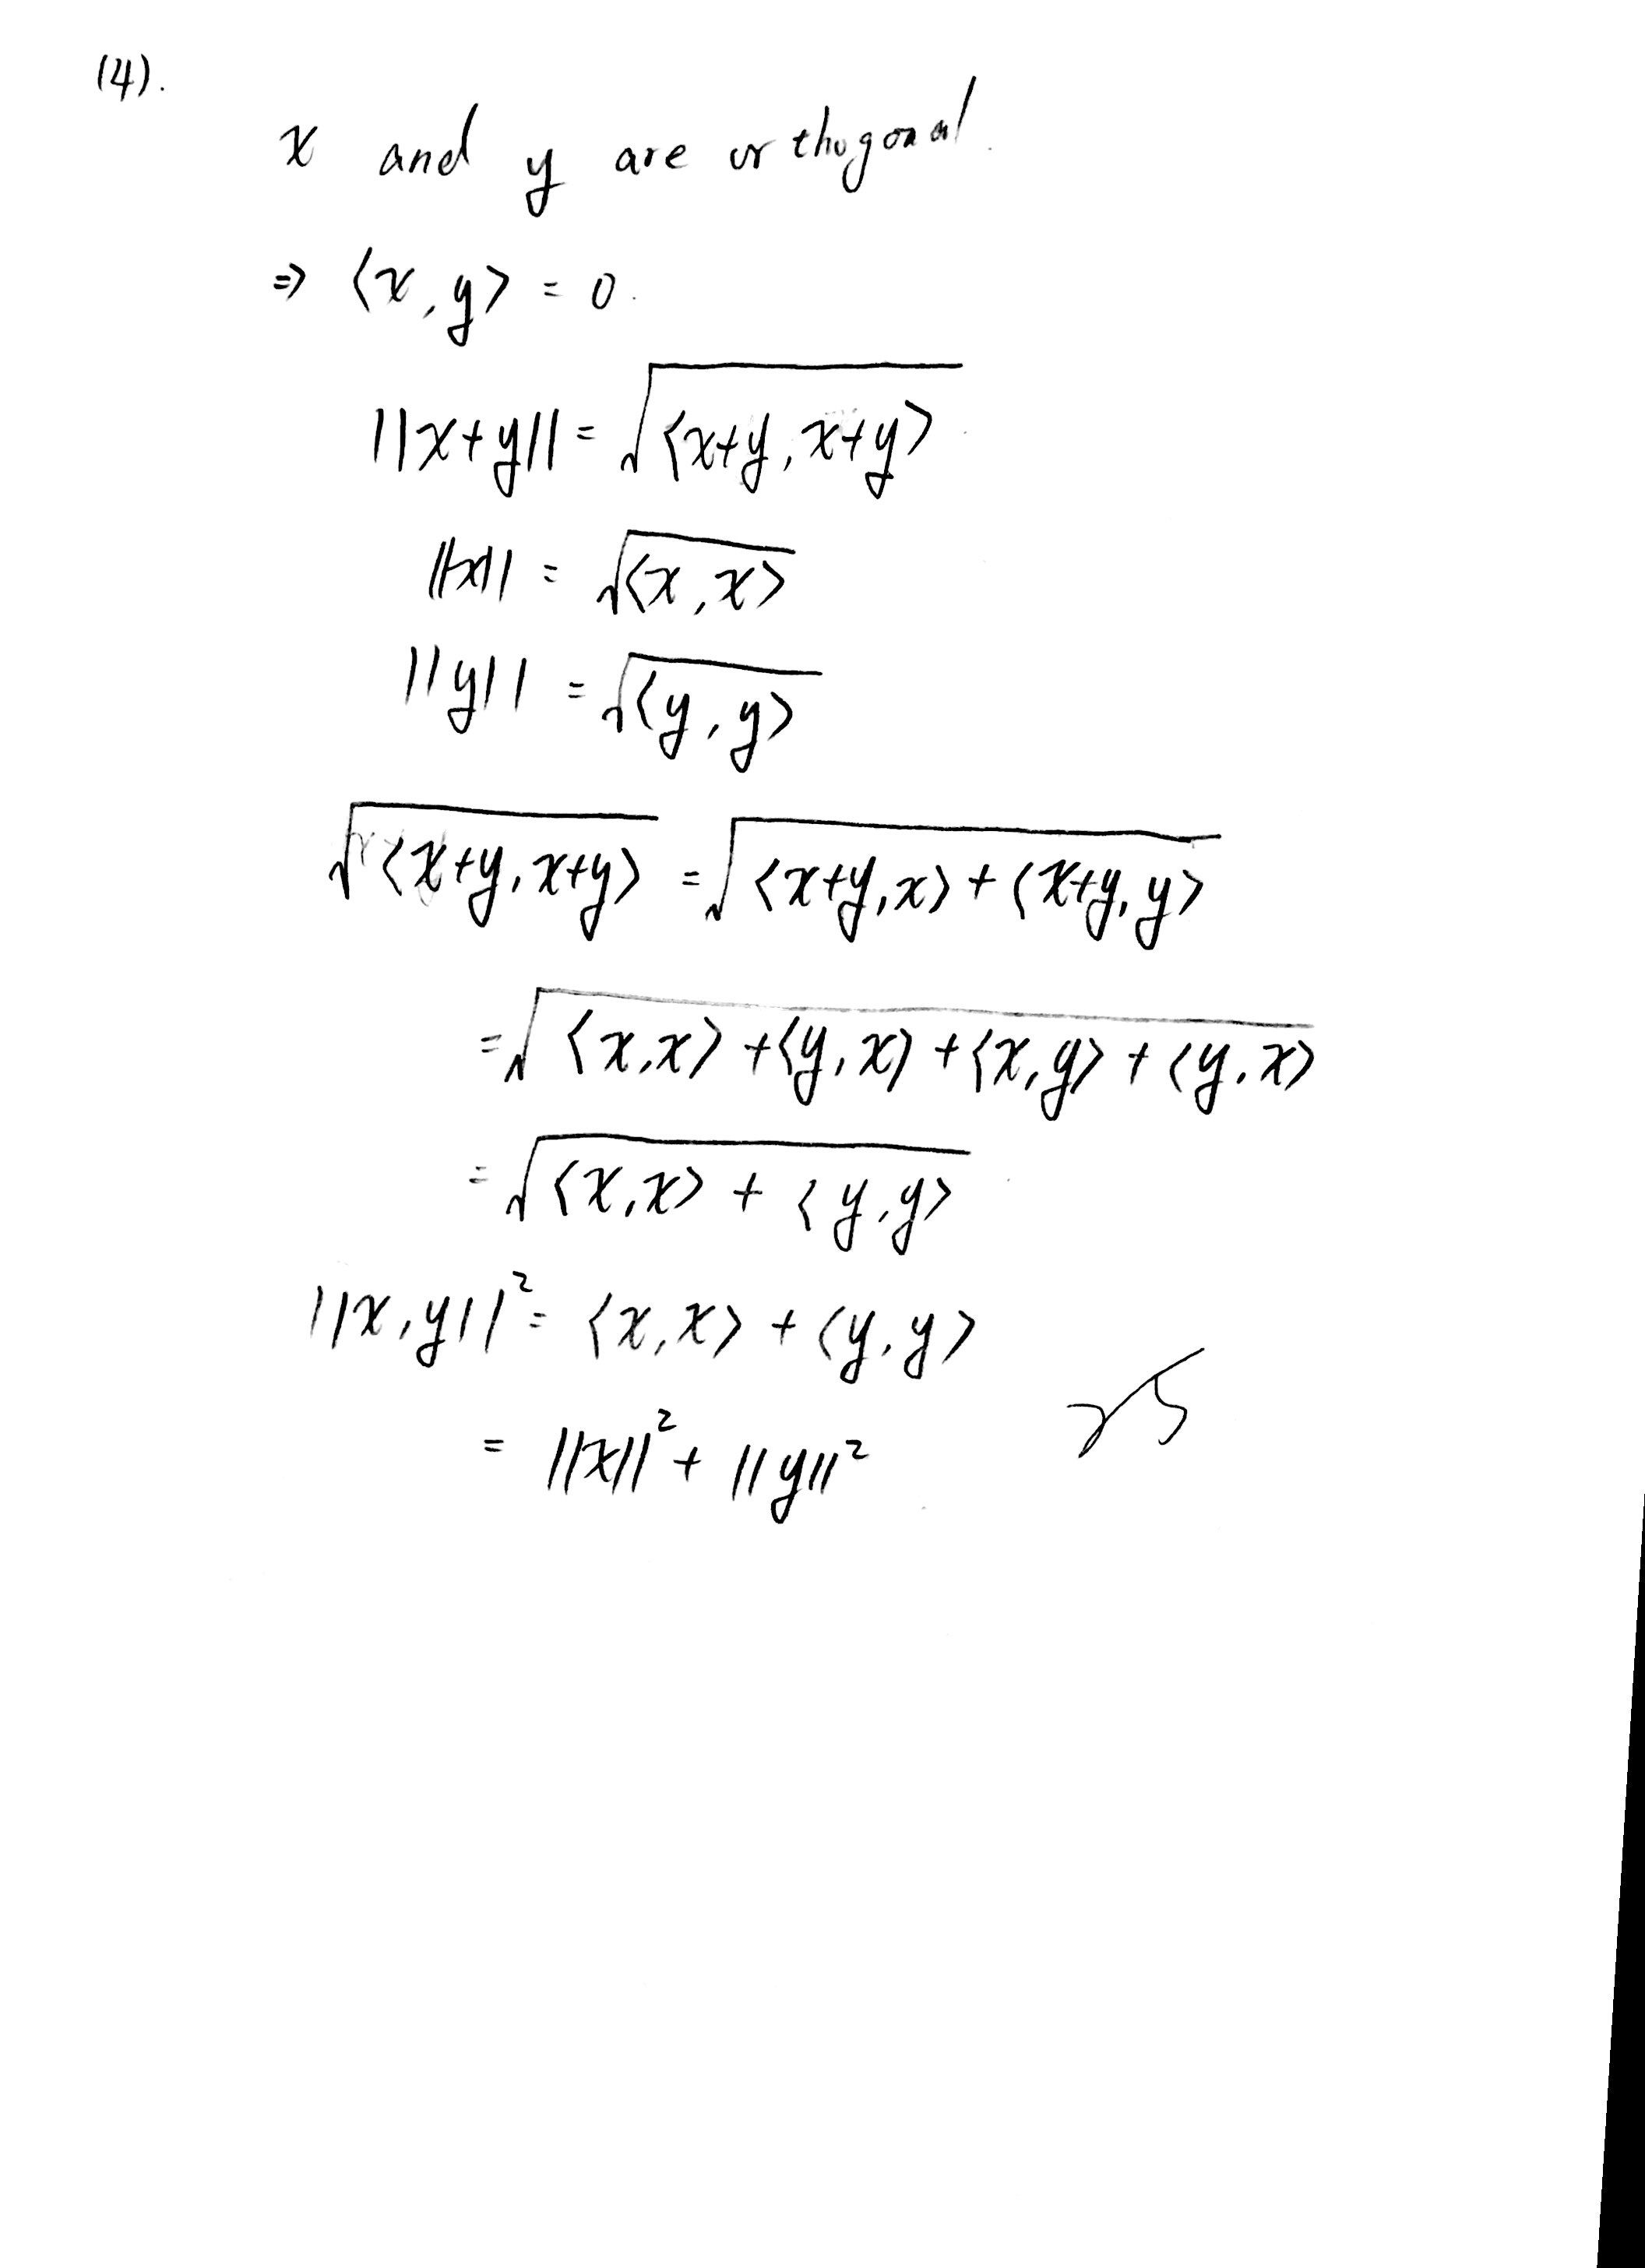 (4).
x and y are orthogonal.
⇒ ⟨x, y⟩ = 0.
||x+y|| = √⟨x+y, x+y⟩
||x|| = √⟨x, x⟩
||y|| = √⟨y, y⟩
√⟨x+y, x+y⟩ = √⟨x+y, x⟩ + ⟨x+y, y⟩
= √⟨x, x⟩ + ⟨y, x⟩ + ⟨x, y⟩ + ⟨y, x⟩
= √⟨x, x⟩ + ⟨y, y⟩
||x, y||² = ⟨x, x⟩ + ⟨y, y⟩
= ||x||² + ||y||²
25